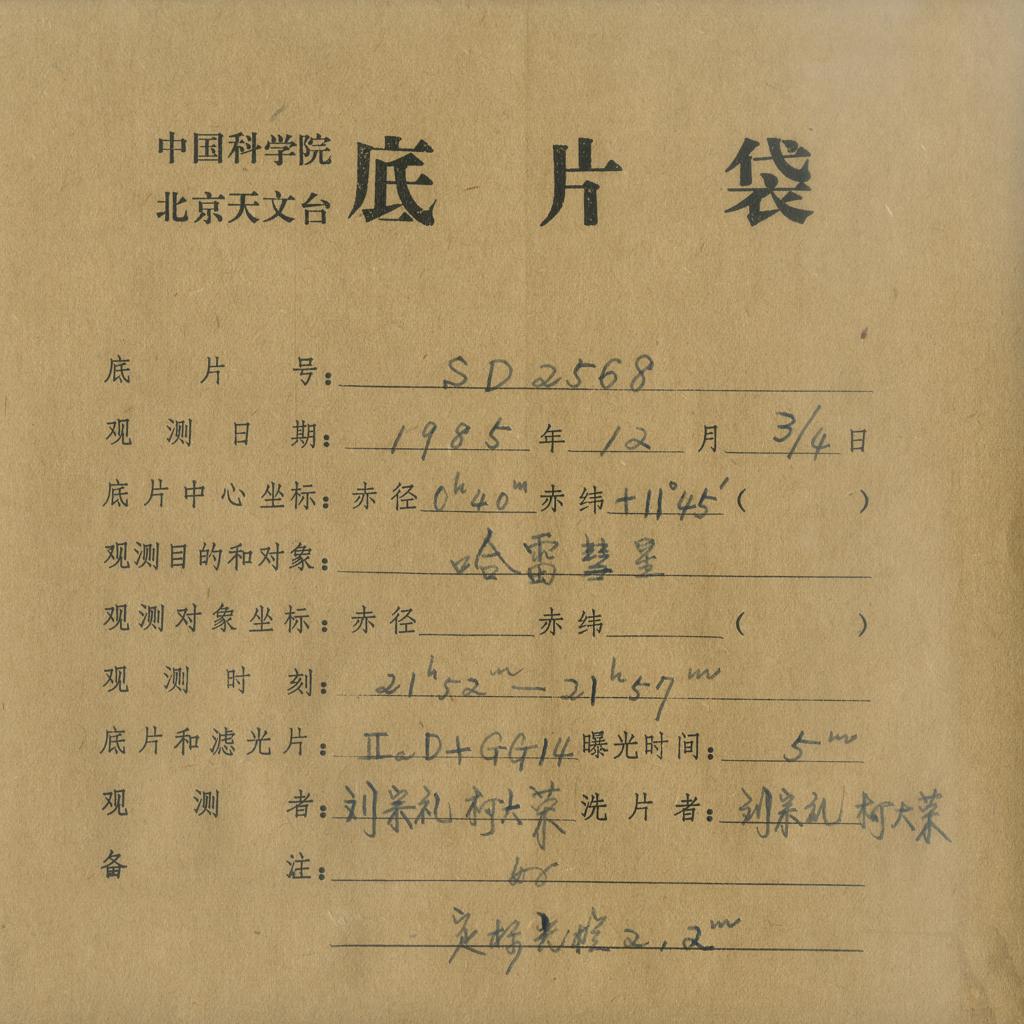 中国科学院
北京天文台 底片袋
底片号: SD2568
观测日期: 1985年12月3/4日
底片中心坐标: 赤径 0h40m 赤纬 +11°45′ ( )
观测目的和对象: 哈雷彗星
观测对象坐标: 赤径 赤纬 ( )
观测时刻: 21h52m — 21h57m
底片和滤光片: ⅡaD+GG14 曝光时间: 5m
观测者: 刘宗礼 柯大荣 洗片者: 刘宗礼 柯大荣
备注:
定标光楔 2, 2m